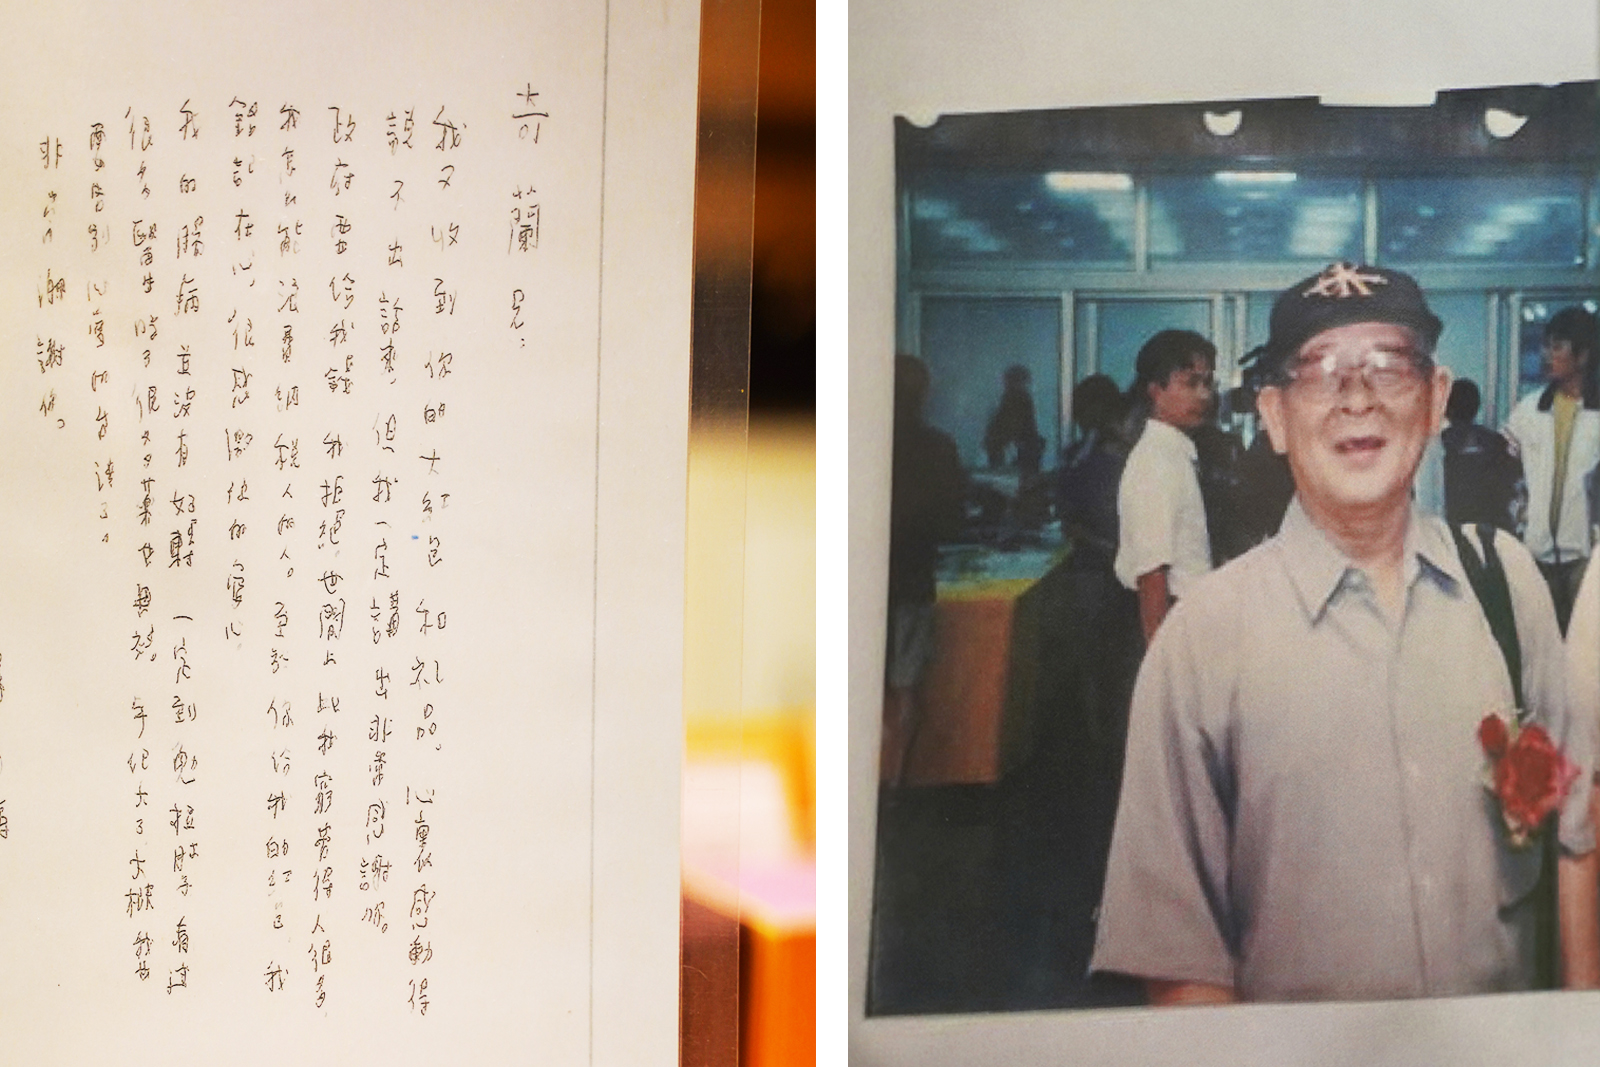 奇蘭兄：
我又收到你的大紅包和礼品。心裏很感動得
說不出話來，但我一定講出非常感謝你。
政府要給我錢 我拒絕，世間上比我窮苦得人很多，
我怎么能浪費納稅人的人。至於你給我的紅包，我
銘記在心，很感激你的安心。
我的腸病並沒有好轉 一定到
很多醫生 吃了很多多葉也無效。年紀大了，大概我也
要告別心愛的台灣了。
非常謝謝你。